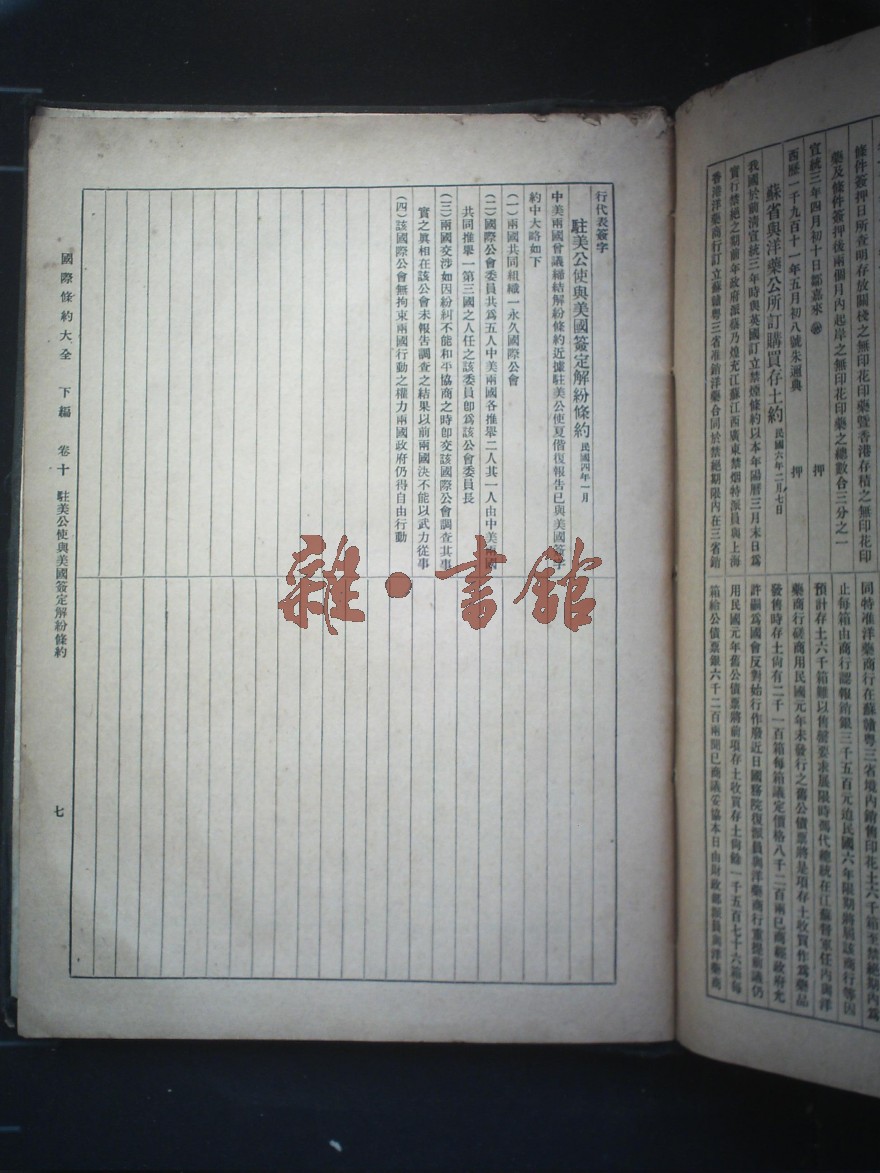 條件簽押日所查明存放關棧之無印花印藥暨香港存積之無印花印
藥及條件簽押後兩個月內起岸之無印花印藥之總數合三分之一
宣統三年四月初十日鄒嘉來 押
西歷一千九百十一年五月初八號朱邇典 押
蘇省與洋藥公所訂購買存土約 民國六年二月七日
我國於前清宣統三年時與英國訂立禁煙條約以本年陽曆三月末日爲
實行禁絕之期前年政府派蔡乃煌充江蘇江西廣東禁烟特派員與上海
香港洋藥商行訂立蘇贛粵三省准銷洋藥合同於禁絕期限內在三省銷
同特准洋藥商行在蘇贛粵三省境內銷售印花土六千箱至禁絕期內爲
止每箱由商行認報銷銀三千五百元迨民國六年限期將屆該商行等因
預計存土六千箱難以售罄要求展限時馮代總統在江蘇督軍任內與洋
藥商行磋商用民國元年未發行之舊公債票將是項存土收買作爲藥品
發售時存土尚有二千一百箱每箱議定價格八千二百兩已商經政府允
許嗣爲國會反對始行作廢近日國務院復派員與洋藥商行重提前議仍
用民國元年舊公債票將前項存土收買存土尚餘一千五百七十六箱每
箱給公債票銀六千二百兩聞已商議妥協本日由財政部派員與洋藥商
行代表簽字
駐美公使與美國簽定解紛條約 民國四年一月
中美兩國會議締結解紛條約近據駐美公使夏偕復報告已與美國簽字
約中大略如下
(一)兩國共同組織一永久國際公會
(二)國際公會委員共爲五人中美兩國各推舉二人其一人由中美兩國
共同推舉一第三國之人任之該委員卽爲該公會委員長
(三)兩國交涉如因紛糾不能和平協商之時卽交該國際公會調查其事
實之眞相在該公會未報告調查之結果以前兩國決不能以武力從事
(四)該國際公會無拘束兩國行動之權力兩國政府仍得自由行動
國際條約大全 下編 卷十 駐美公使與美國簽定解紛條約 七
雜·書館